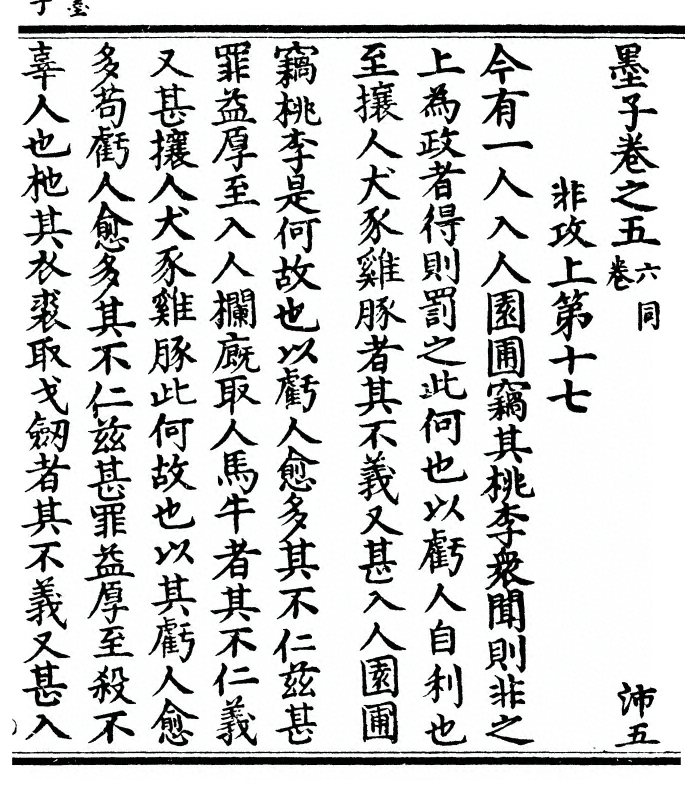 墨子卷之五 六同卷 沛五
非攻上第十七
今有一人入人園圃竊其桃李衆聞則非之
上為政者得則罰之此何也以虧人自利也
至攘人犬豕雞豚者其不義又甚入人園圃
竊桃李是何故也以虧人愈多其不仁茲甚
罪益厚至入人欄廐取人馬牛者其不仁義
又甚攘人犬豕雞豚此何故也以其虧人愈
多苟虧人愈多其不仁茲甚罪益厚至殺不
辜人也杝其衣裘取戈劒者其不義又甚入